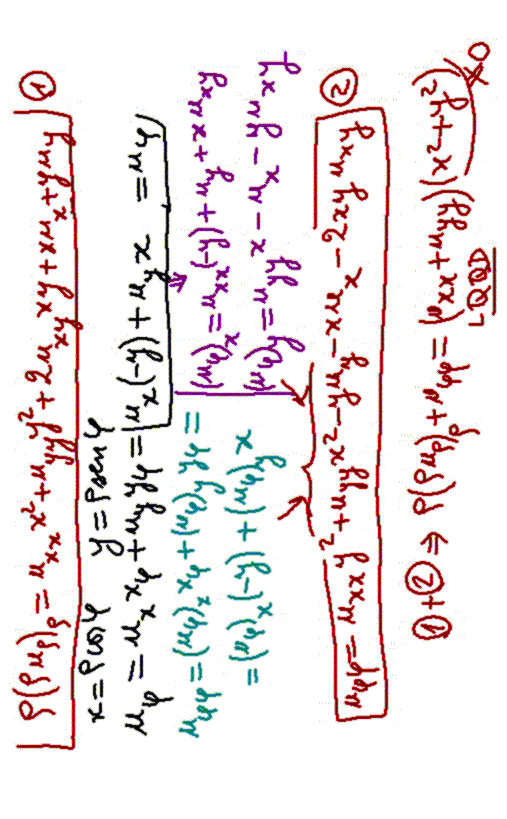 ρ(ρu_ρ)_ρ = u_xx x² + u_yy y² + 2u_xy xy + xu_x + yu_y ①
x = ρcosφ y = ρsenφ
u_φ = u_x x_φ + u_y y_φ = u_x(-y) + u_y x = u_φ
u_φφ = (u_φ)_x x_φ + (u_φ)_y y_φ =
= (u_φ)_x (-y) + (u_φ)_y x
(u_φ)_x = u_xx(-y) + u_y + xu_xy
(u_φ)_y = u_yy x - u_x - yu_xy
u_φφ = u_xx y² + u_yy x² - yu_y - xu_x - 2xy u_xy ②
①+② ⇒ ρ(ρu_ρ)_ρ + u_φφ = (u_xx + u_yy)(x² + y²) ≠0
LQQD